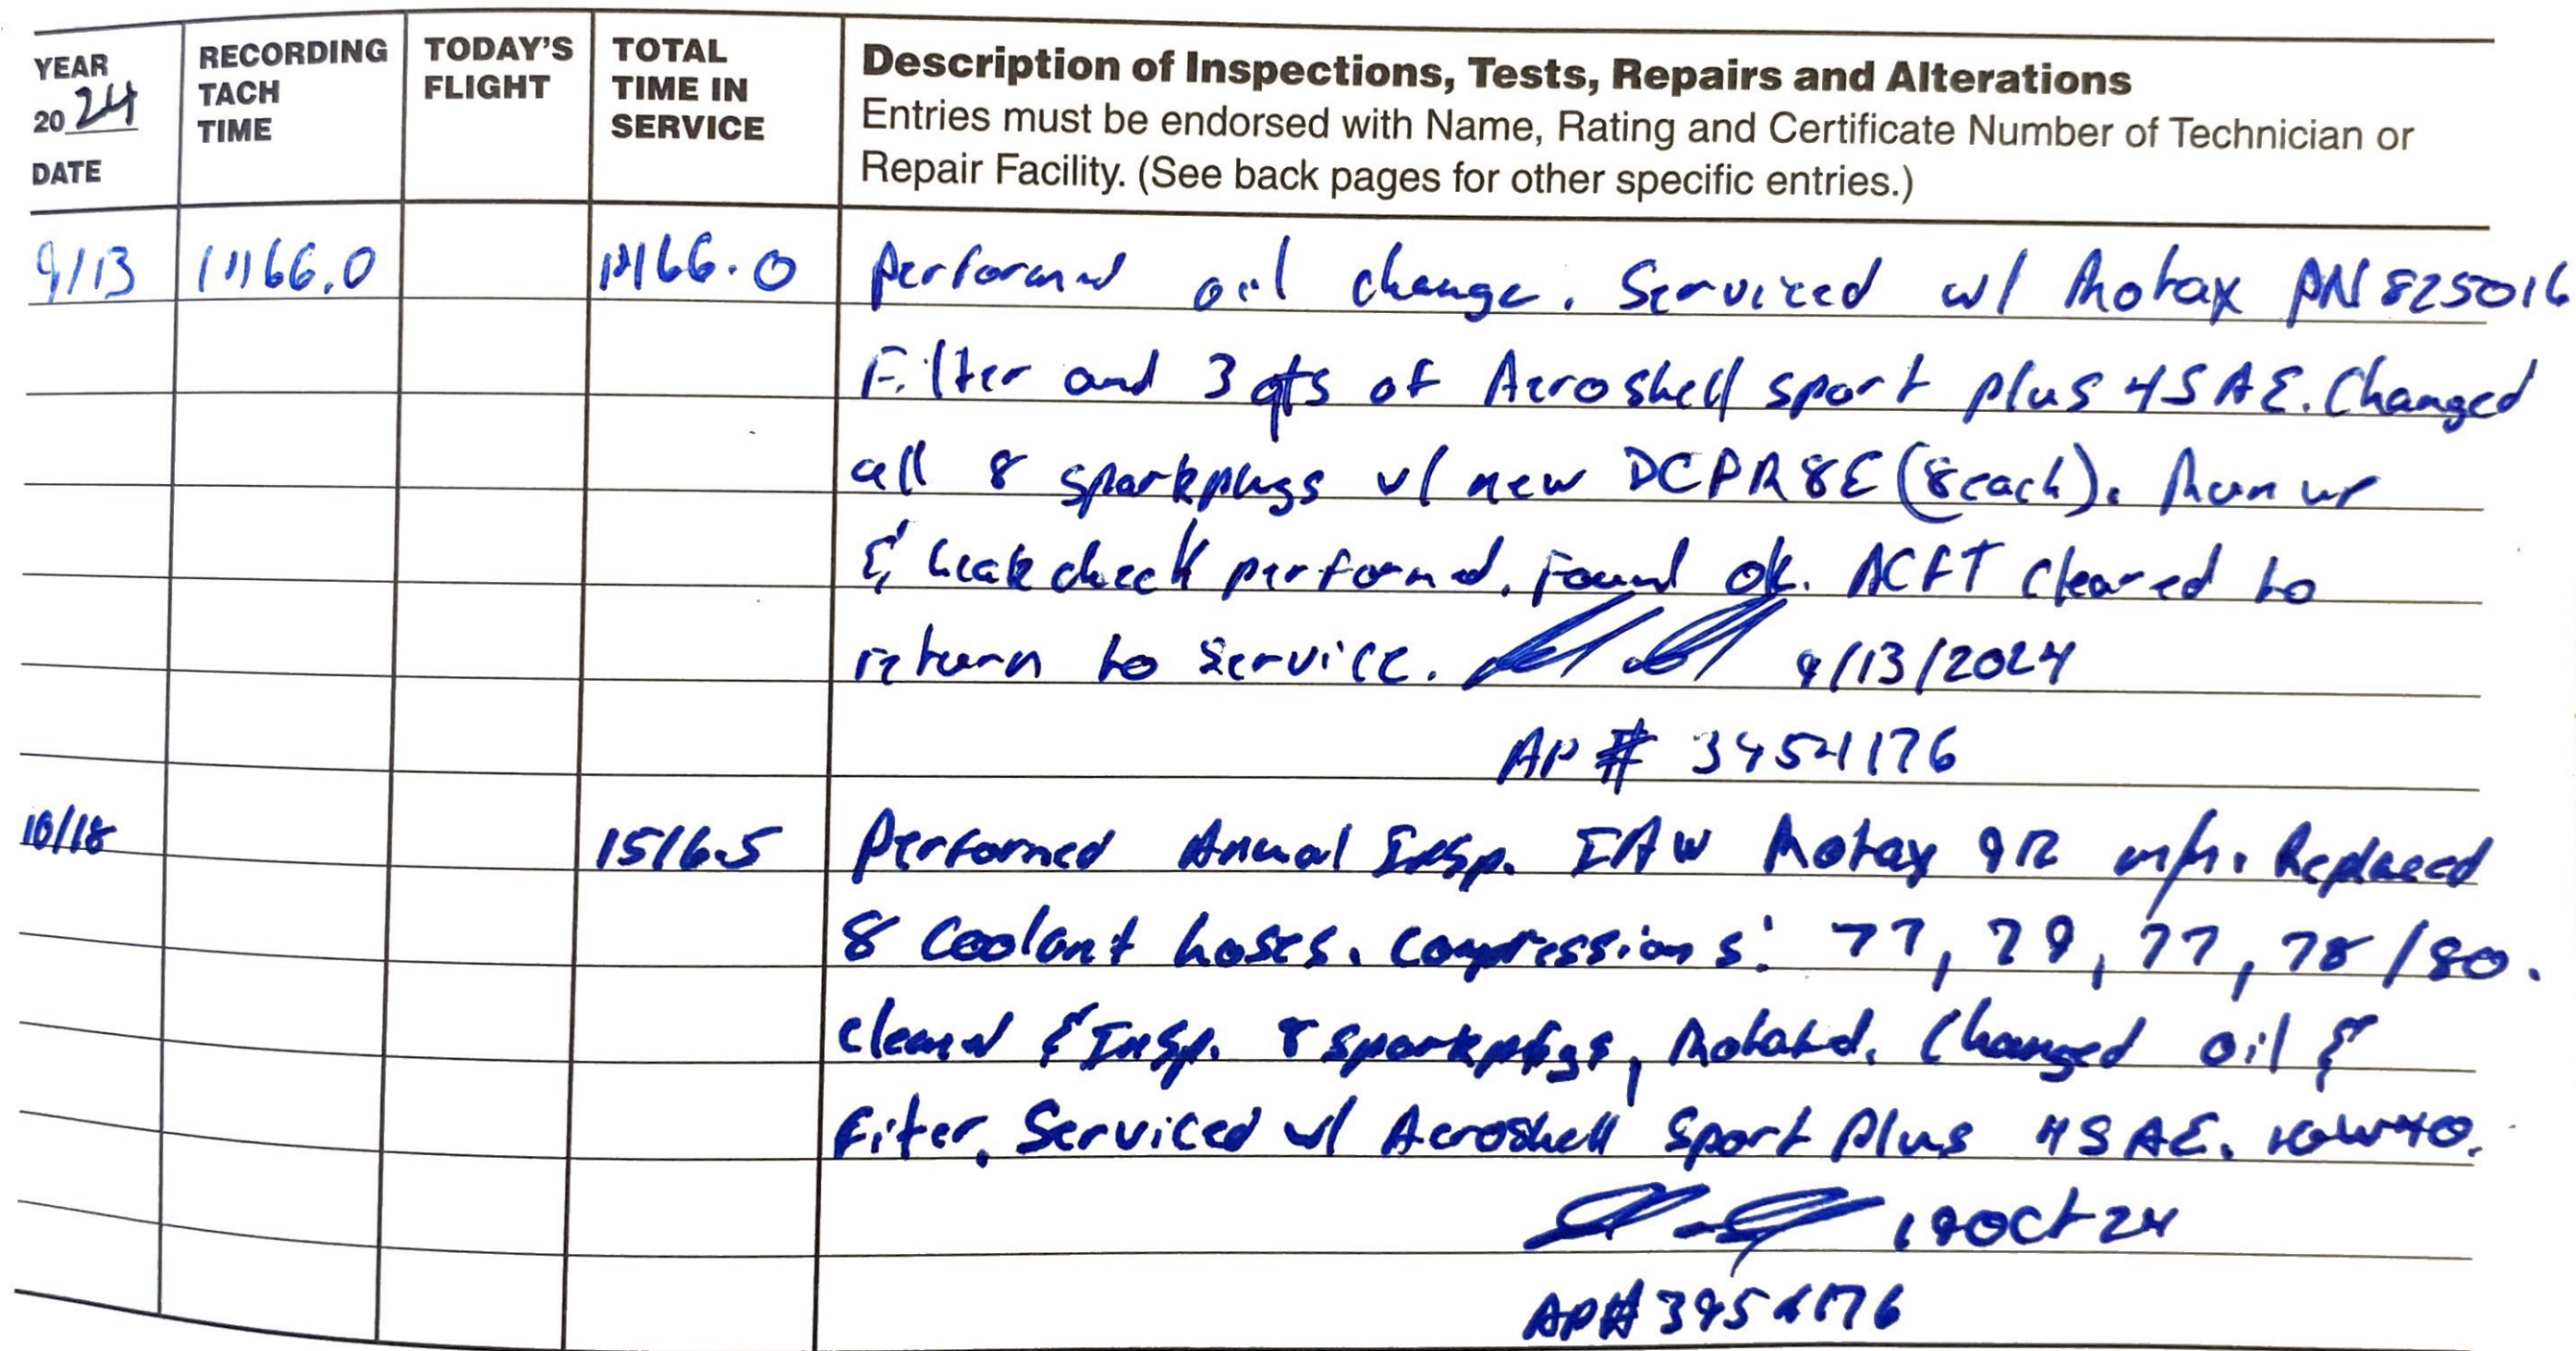 YEAR 2024 DATE
RECORDING TACH TIME
TODAY'S FLIGHT
TOTAL TIME IN SERVICE
Description of Inspections, Tests, Repairs and Alterations
Entries must be endorsed with Name, Rating and Certificate Number of Technician or
Repair Facility. (See back pages for other specific entries.)
9/13 performed oil change. Serviced w/ Rotax PN 825016
Filter and 3 qts of Aeroshell sport plus 4 SAE. Changed
all 8 sparkplugs w/ new DCPR8E (8 each). Run up
& Leak check performed. Found ok. ACFT cleared to
return to service. 9/13/2024
AP #
10/18 1516.5 Performed Annual Insp. IAW Rotax 912 m/m. Replaced
8 Coolant hoses. Compressions: 77, 79, 77, 78/80.
cleaned & Insp. 8 sparkplugs, Rotated. Changed oil &
Fiter. Serviced w/ Aeroshell Sport Plus 4 SAE. 10W40.
Oct 24
AP#